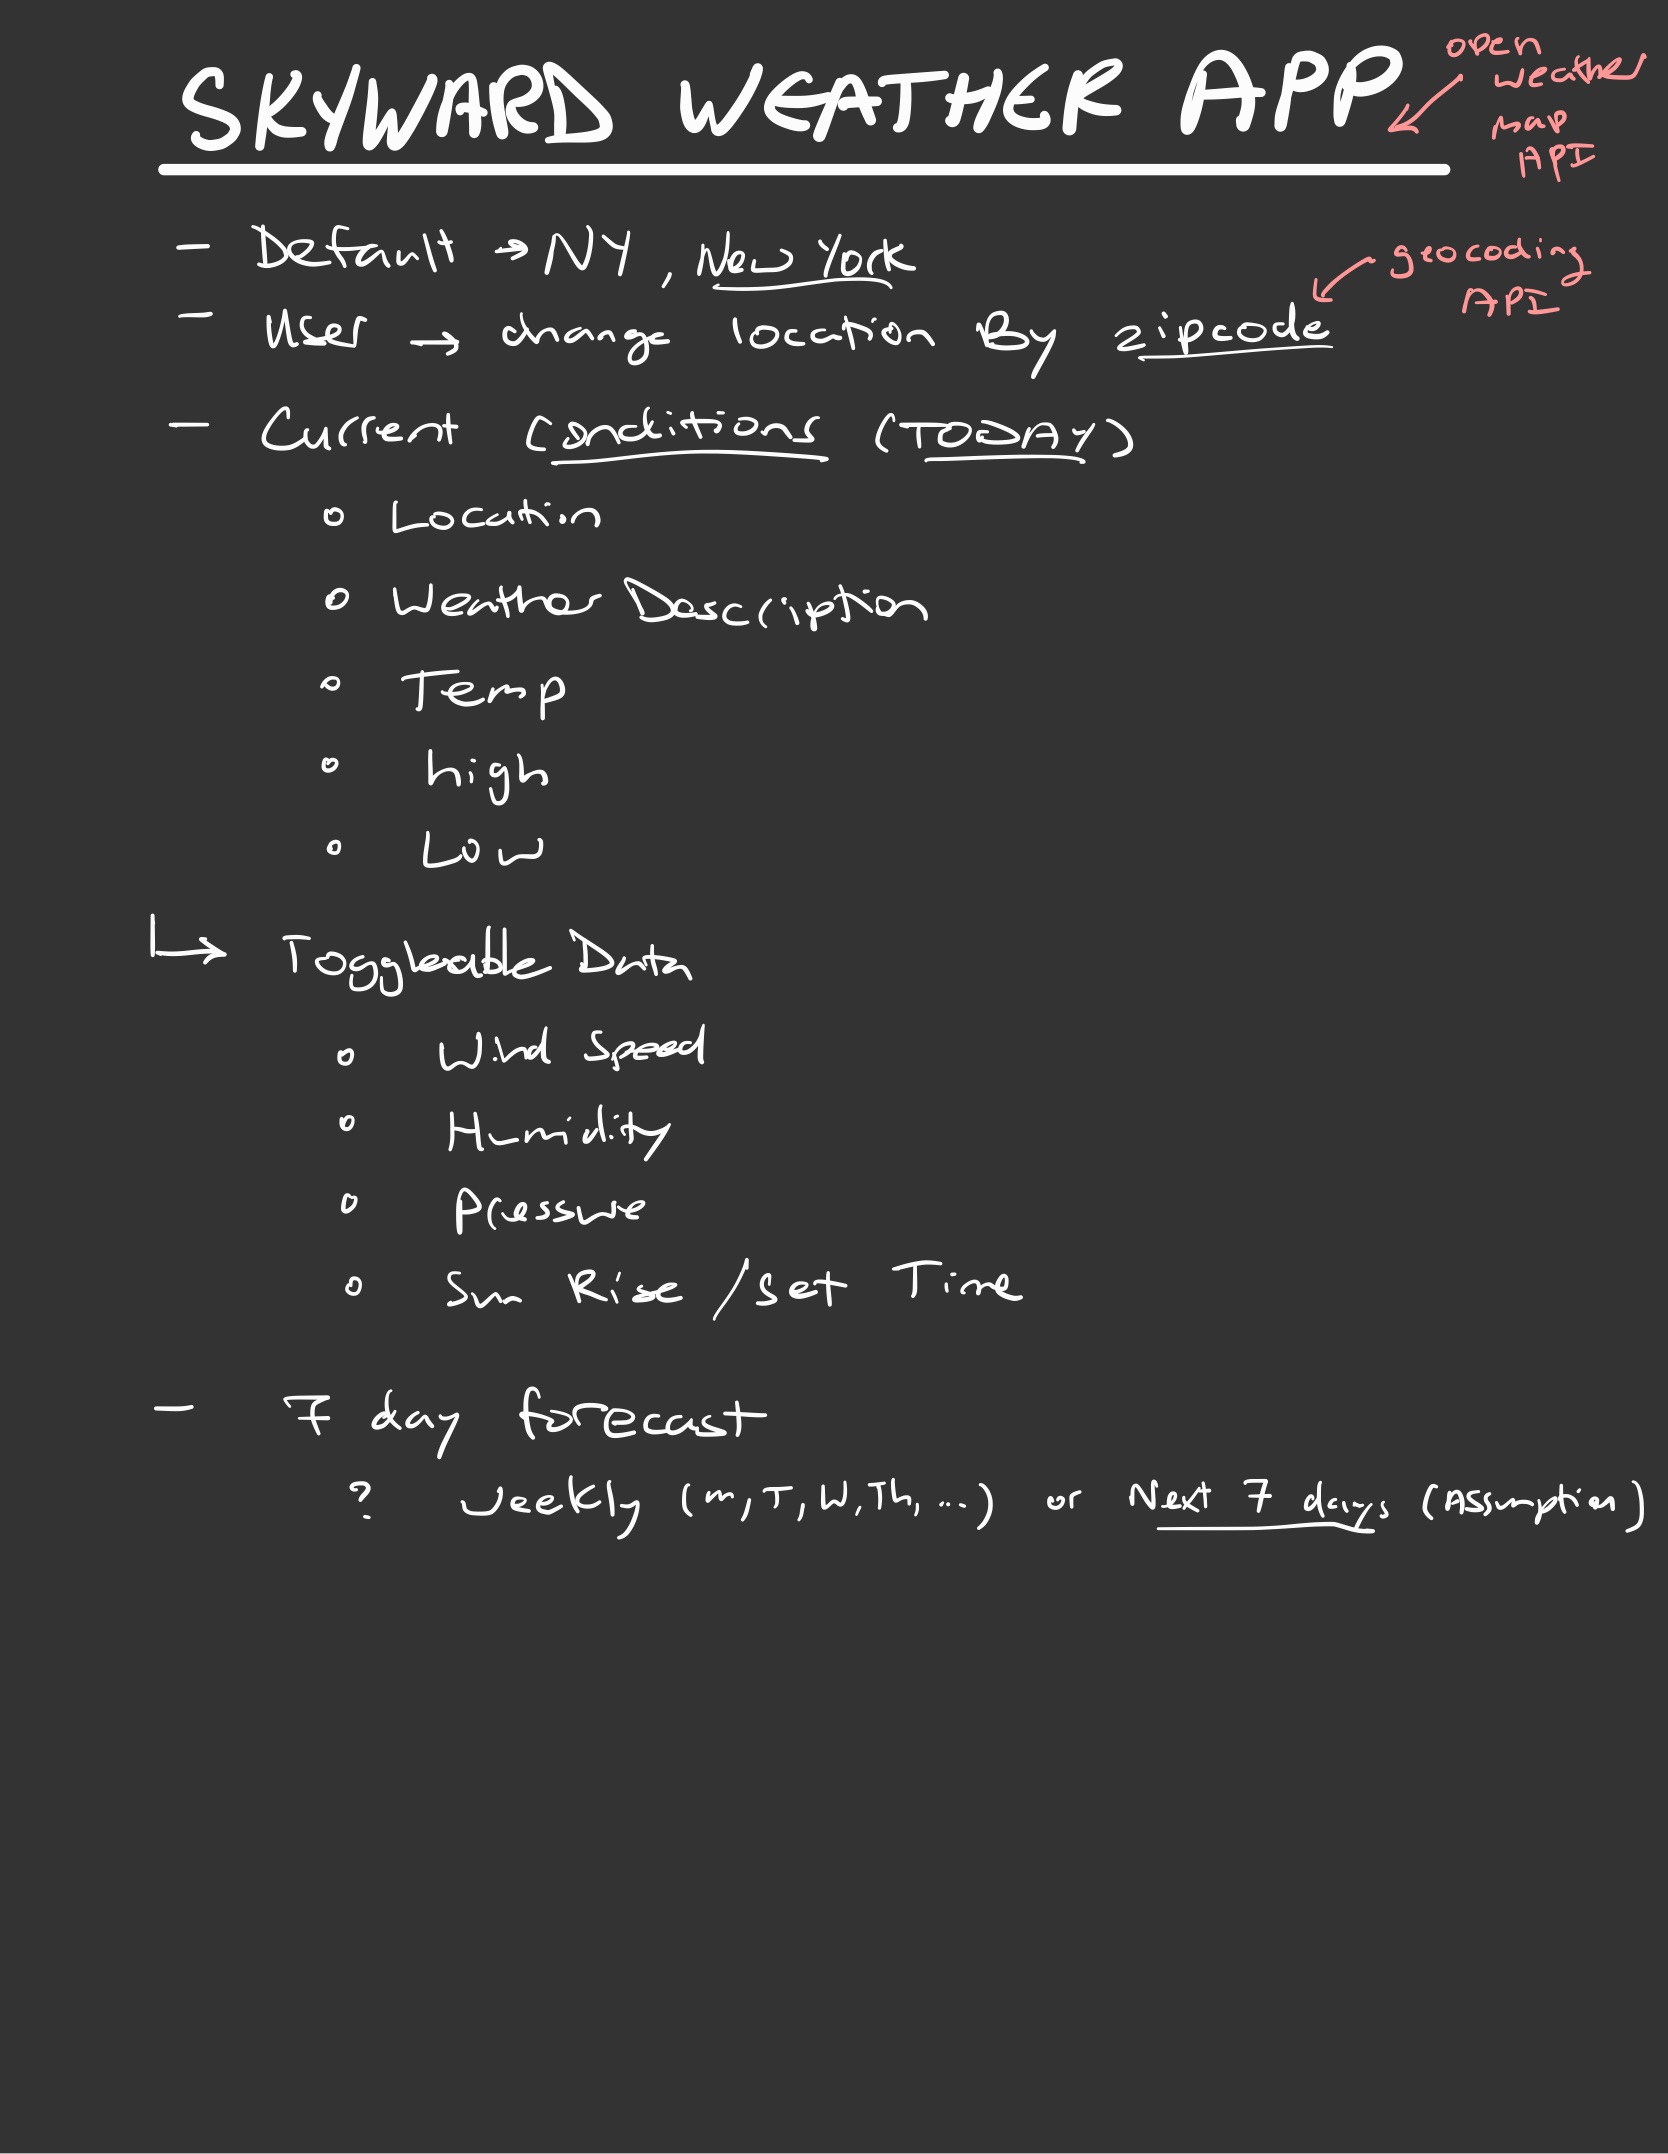 SKYWARD WEATHER APP
open
weather
map
API
- Default → NY, New York
geocoding
API
- User → change location By zipcode
- Current Conditions (TODAY)
o Location
o Weather Description
o Temp
o high
o Low
↳ Toggleable Data
o Wind Speed
o Humidity
o Pressure
o Sun Rise / Set Time
- 7 day forecast
? Weekly (m, T, W, Th, ...) or Next 7 days (Assumption)